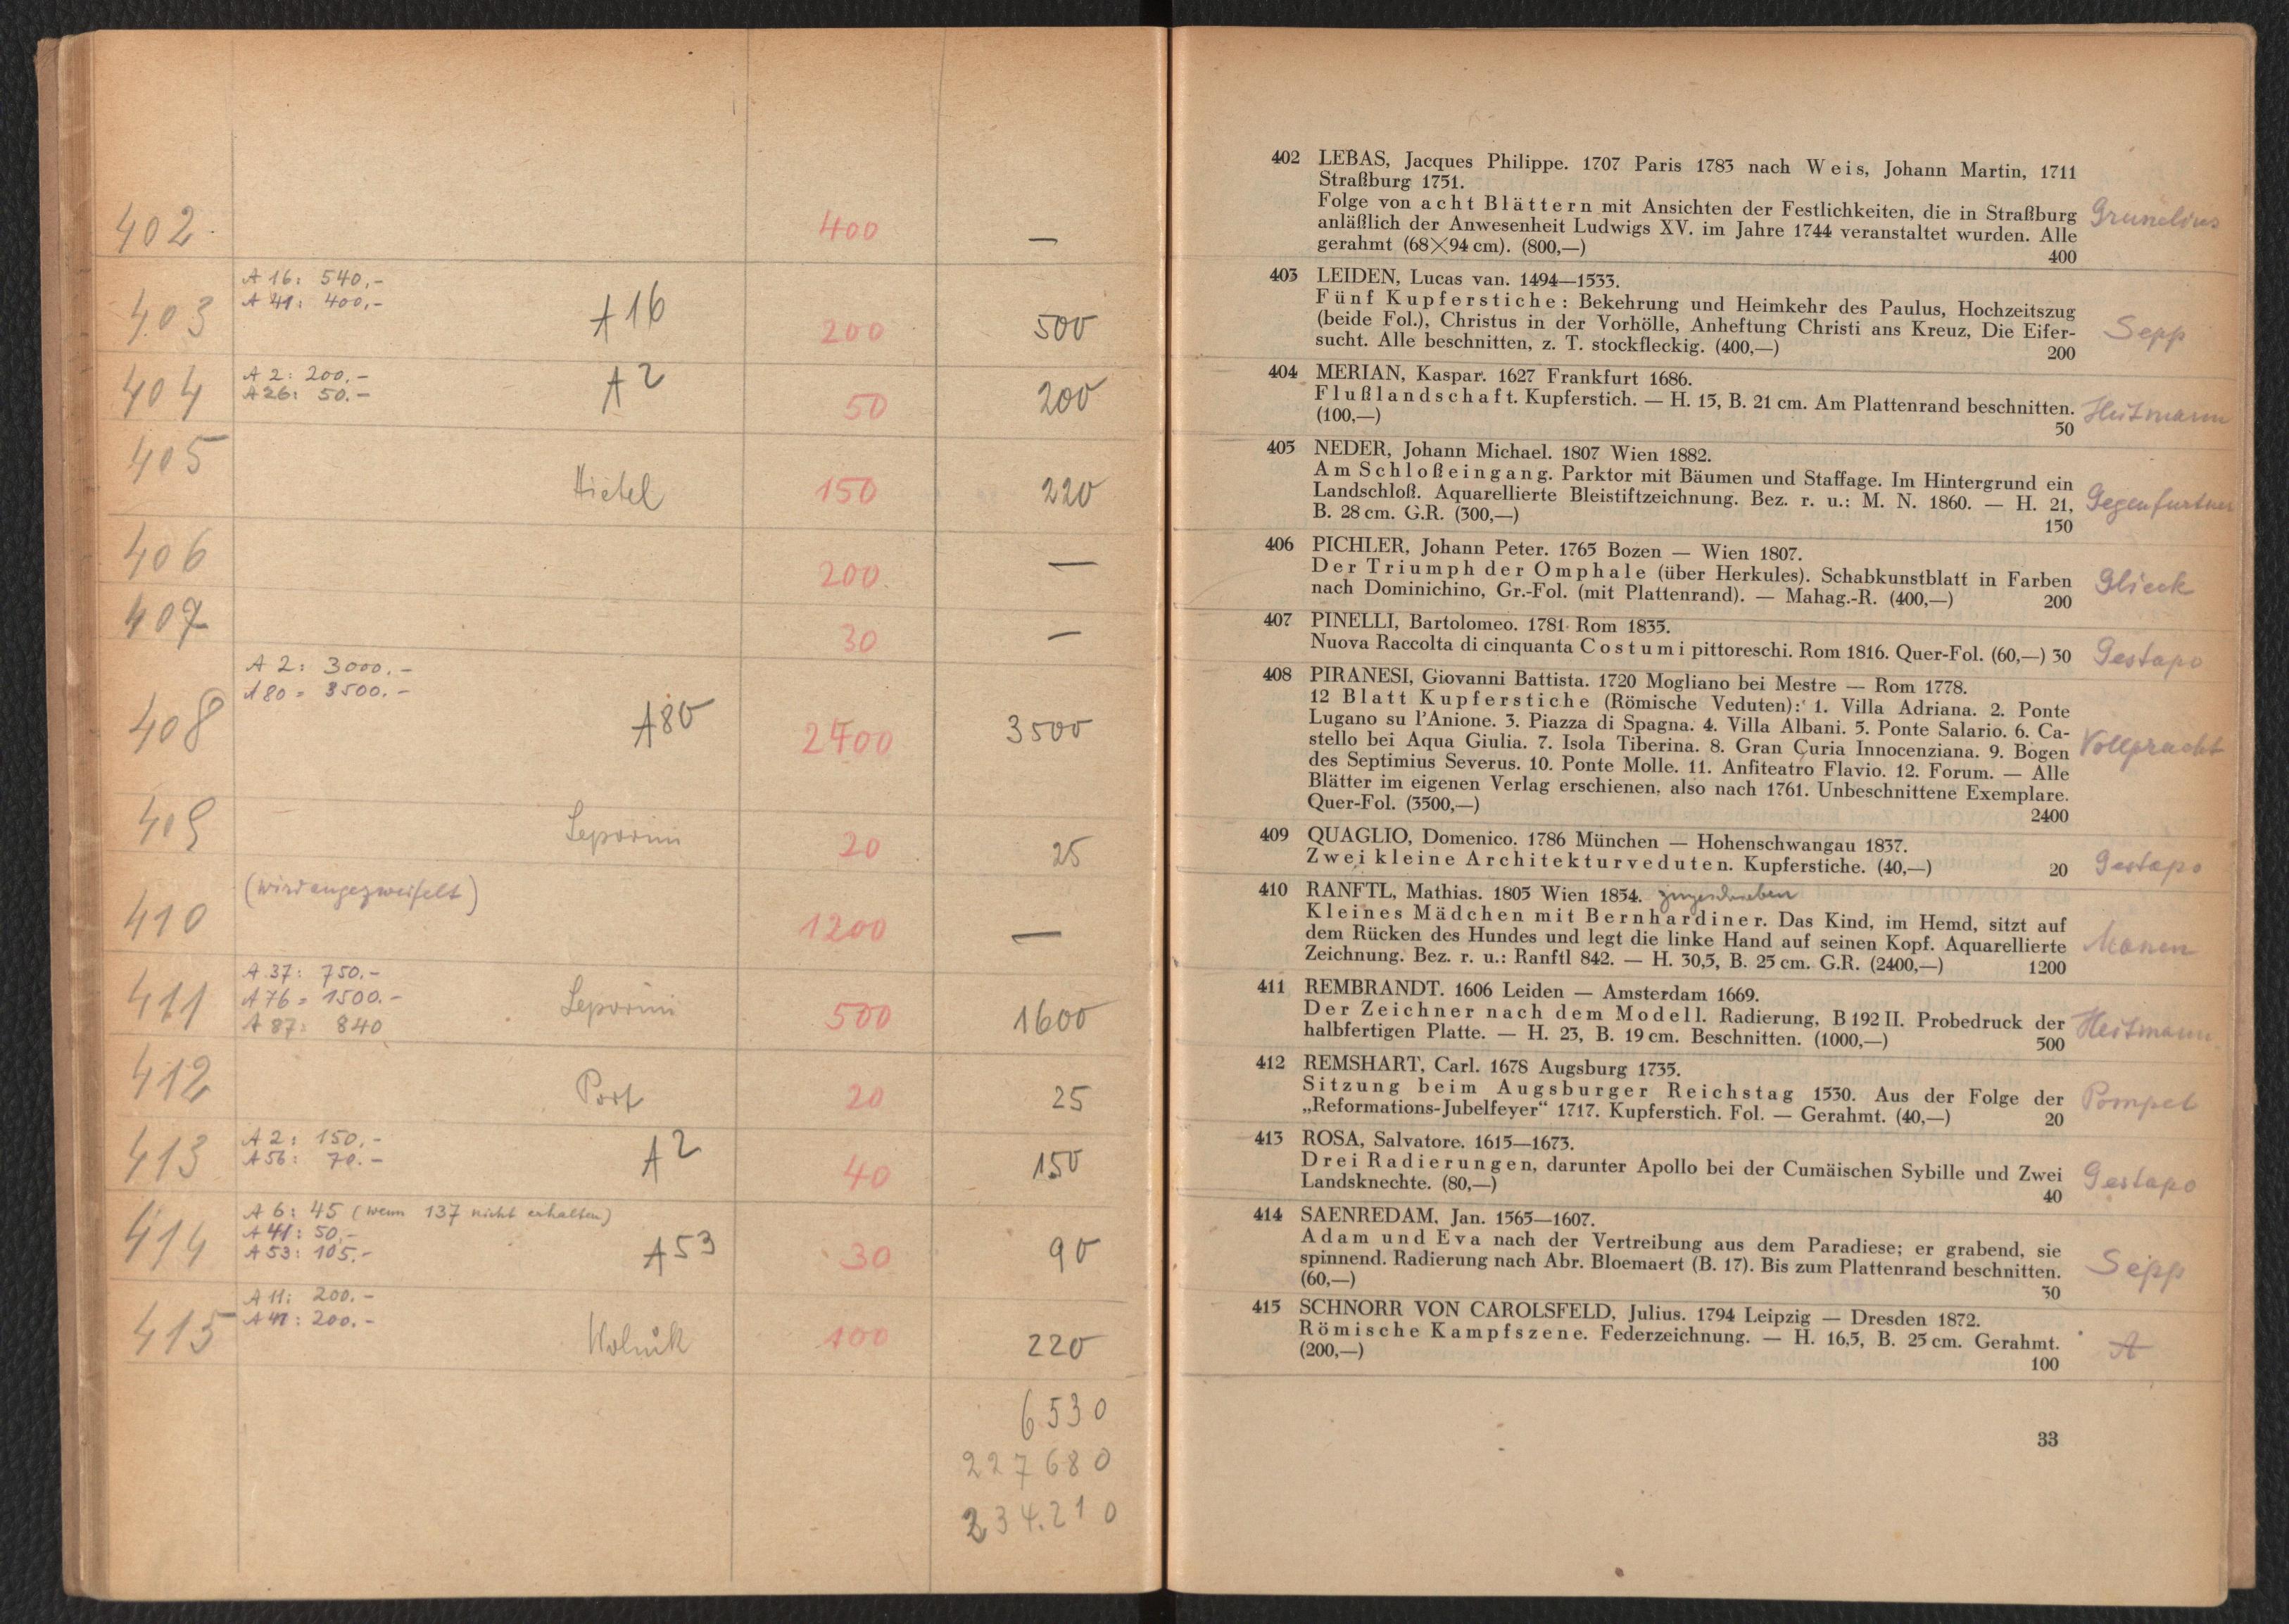 402 400 —
A 16: 540,-
A 41: 400,-
403 A 16 200 500
A 2: 200.-
A 26: 50.-
404 A 2 50 200
405 150 220
406 200 —
407 30 —
A 2: 3000.-
A 80 = 3500.-
408 A 80 2400 3500
409 Leporini 20 25
(wird angezweifelt)
410 1200 —
A 37: 750.-
A 76 = 1500.-
A 87: 840
411 Leporini 500 1600
412 Port 20 25
A 2: 150.-
A 56: 70.-
413 A 2 40 150
A 6: 45 (wenn 137 nicht erhalten)
A 41: 50,-
A 53: 105.-
414 A 53 30 90
A 11: 200.-
A 41: 200.-
415 100 220
6530
227680
234.210
402 LEBAS, Jacques Philippe. 1707 Paris 1783 nach Weis, Johann Martin, 1711
Straßburg 1751.
Folge von acht Blättern mit Ansichten der Festlichkeiten, die in Straßburg
anläßlich der Anwesenheit Ludwigs XV. im Jahre 1744 veranstaltet wurden. Alle
gerahmt (68×94 cm). (800,—) 400
Grunelius
403 LEIDEN, Lucas van. 1494—1533.
Fünf Kupferstiche: Bekehrung und Heimkehr des Paulus, Hochzeitszug
(beide Fol.), Christus in der Vorhölle, Anheftung Christi ans Kreuz, Die Eifer-
sucht. Alle beschnitten, z. T. stockfleckig. (400,—) 200
Sepp
404 MERIAN, Kaspar. 1627 Frankfurt 1686.
Flußlandschaft. Kupferstich. — H. 15, B. 21 cm. Am Plattenrand beschnitten.
(100,—) 50
Heitmann
405 NEDER, Johann Michael. 1807 Wien 1882.
Am Schloßeingang. Parktor mit Bäumen und Staffage. Im Hintergrund ein
Landschloß. Aquarellierte Bleistiftzeichnung. Bez. r. u.: M. N. 1860. — H. 21,
B. 28 cm. G.R. (300,—) 150
Gegenfurtner
406 PICHLER, Johann Peter. 1765 Bozen — Wien 1807.
Der Triumph der Omphale (über Herkules). Schabkunstblatt in Farben
nach Dominichino, Gr.-Fol. (mit Plattenrand). — Mahag.-R. (400,—) 200
407 PINELLI, Bartolomeo. 1781 Rom 1835.
Nuova Raccolta di cinquanta Costumi pittoreschi. Rom 1816. Quer-Fol. (60,—) 30
Gestapo
408 PIRANESI, Giovanni Battista. 1720 Mogliano bei Mestre — Rom 1778.
12 Blatt Kupferstiche (Römische Veduten): 1. Villa Adriana. 2. Ponte
Lugano su l'Anione. 3. Piazza di Spagna. 4. Villa Albani. 5. Ponte Salario. 6. Ca-
stello bei Aqua Giulia. 7. Isola Tiberina. 8. Gran Curia Innocenziana. 9. Bogen
des Septimius Severus. 10. Ponte Molle. 11. Anfiteatro Flavio. 12. Forum. — Alle
Blätter im eigenen Verlag erschienen, also nach 1761. Unbeschnittene Exemplare.
Quer-Fol. (3500,—) 2400
Vollpracht
409 QUAGLIO, Domenico. 1786 München — Hohenschwangau 1837.
Zwei kleine Architekturveduten. Kupferstiche. (40,—) 20
Gestapo
410 RANFTL, Mathias. 1805 Wien 1854. zugeschrieben
Kleines Mädchen mit Bernhardiner. Das Kind, im Hemd, sitzt auf
dem Rücken des Hundes und legt die linke Hand auf seinen Kopf. Aquarellierte
Zeichnung. Bez. r. u.: Ranftl 842. — H. 30,5, B. 25 cm. G.R. (2400,—) 1200
411 REMBRANDT. 1606 Leiden — Amsterdam 1669.
Der Zeichner nach dem Modell. Radierung, B 192 II. Probedruck der
halbfertigen Platte. — H. 23, B. 19 cm. Beschnitten. (1000,—) 500
Heitmann
412 REMSHART, Carl. 1678 Augsburg 1735.
Sitzung beim Augsburger Reichstag 1530. Aus der Folge der
„Reformations-Jubelfeyer“ 1717. Kupferstich. Fol. — Gerahmt. (40,—) 20
413 ROSA, Salvatore. 1615—1673.
Drei Radierungen, darunter Apollo bei der Cumäischen Sybille und Zwei
Landsknechte. (80,—) 40
Gestapo
414 SAENREDAM, Jan. 1565—1607.
Adam und Eva nach der Vertreibung aus dem Paradiese; er grabend, sie
spinnend. Radierung nach Abr. Bloemaert (B. 17). Bis zum Plattenrand beschnitten.
(60,—) 30
Sepp
415 SCHNORR VON CAROLSFELD, Julius. 1794 Leipzig — Dresden 1872.
Römische Kampfszene. Federzeichnung. — H. 16,5, B. 25 cm. Gerahmt.
(200,—) 100
A
33